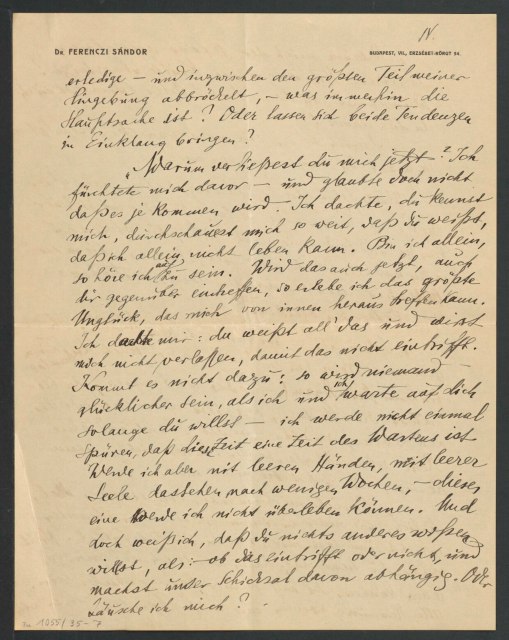 IV.
Dr. FERENCZI SÁNDOR
BUDAPEST, VII., ERZSÉBET-KÖRUT 54.
erledige — und inzwischen den größten Teil meiner
Umgebung abbröckelt, — was immerhin die
Hauptsache ist? Oder lassen sich beide Tendenzen
in Einklang bringen?
„Warum verließest du mich jetzt? Ich
fürchtete mich davor — und glaubte doch nicht
daß es je kommen wird. Ich dachte, du kennst
mich, durchschauest mich so weit, daß du weißt,
daß ich allein nicht leben kann. Bin ich allein,
so höre ich auf zu sein. Wird das auch jetzt, auch
dir gegenüber eintreffen, so erlebe ich das größte
Unglück, das mich von innen heraus treffen kann.
Ich dachte mir: du weißt all' das und wirst
mich nicht verlassen, damit das nicht eintrifft.
Kommt es nicht dazu: so wird niemand
glücklicher sein, als ich und ich warte auf dich
solange du willst — ich werde nicht einmal
spüren, daß diese Zeit eine Zeit des Wartens ist
Werde ich aber mit leeren Händen, mit leerer
Seele dastehen nach wenigen Wochen, — dieses
eine werde ich nicht überleben können. Und
doch weiß ich, daß du nichts anderes wissen
willst, als: ob das eintrifft oder nicht, und
machst unser Schicksal davon abhängig. Oder
täusche ich mich?
1055/35-7